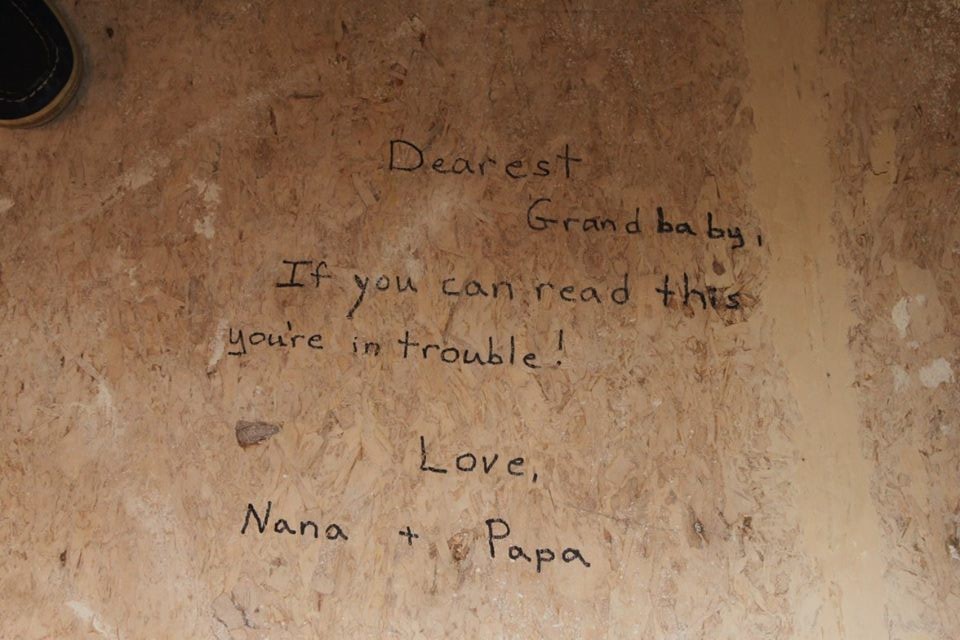 Dearest
Grandbaby,
If you can read this
you're in trouble!
Love,
Nana + Papa